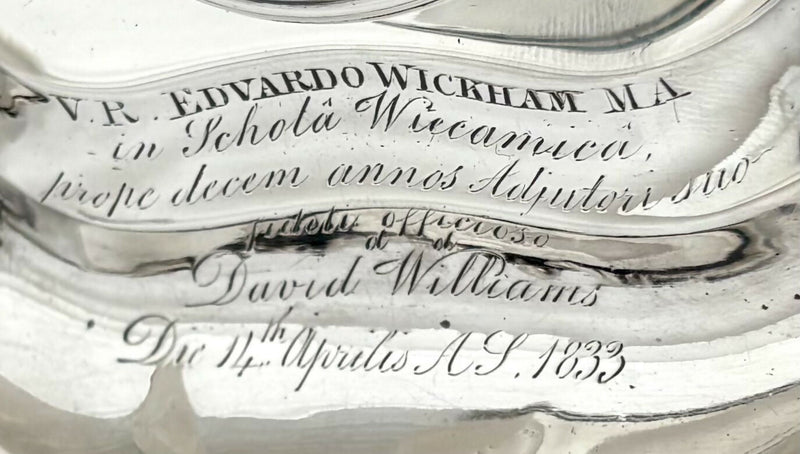 V. R. EDVARDO WICKHAM M A
in Scholâ Wiccamicâ,
prope decem annos Adjutori suo
fideli officioso
d d
David Williams
Die 14th Aprilis A S. 1833.